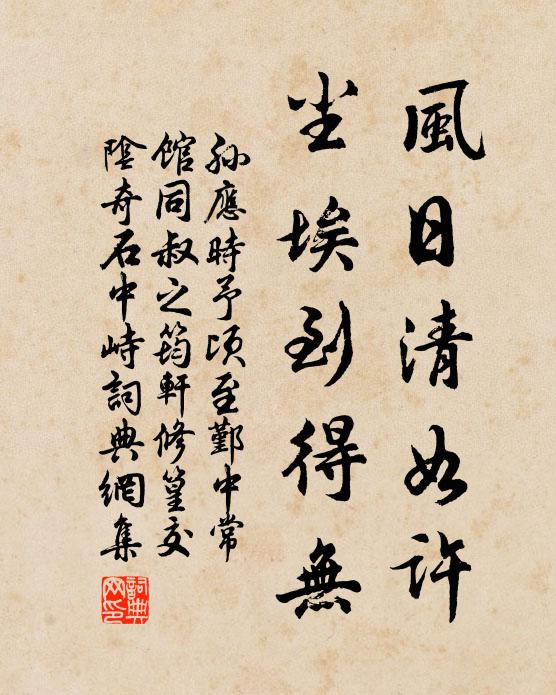 風日清如許
尘埃到得無
孫應時予頃至鄞中常
館同叔之筠軒修篁交
陰奇石中峙詞典網集
詞典
网印